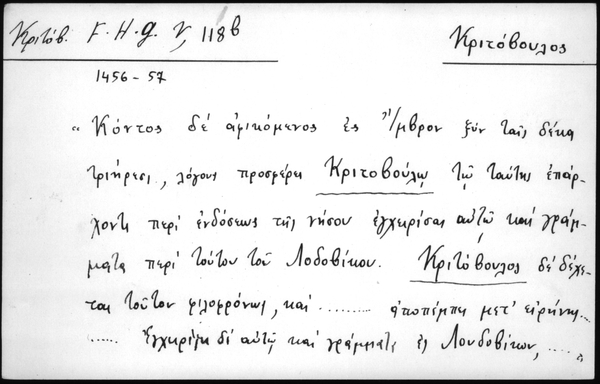 Κριτόβ. F.H.g. V, 118b
Κριτόβουλος
1456-57
"Κόντος δέ ἀφικόμενος ἐς Ἴμβρον ξύν ταῖς δέκα
τριήρεσι, λόγους προσφέρει Κριτοβούλῳ τῷ ταύτης ἐπάρ-
χοντι περί ἐνδόσεως τῆς νήσου ἐγχειρίσας αὐτῷ καί γράμ-
ματα περί τούτου τοῦ Λοδοβίκου. Κριτόβουλος δέ δέχε-
ται τοῦτον φιλοφρόνως, καί ......... ἀποπέμπει μετ' εἰρήνης...
...... Ἐγχειρίζει δέ αὐτῷ καί γράμματα ἐς Λονδοβίκον, .....